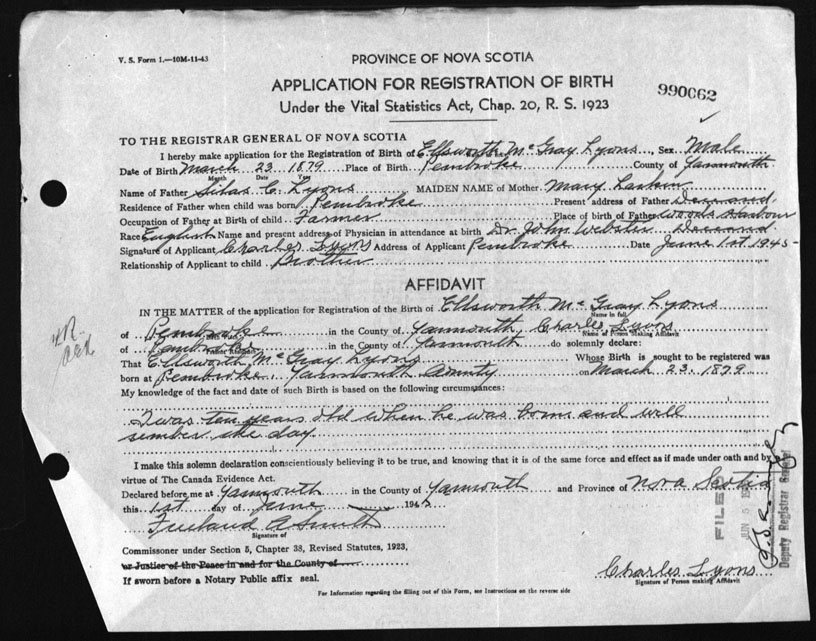 V. S. Form 1.—10M-11-43
PROVINCE OF NOVA SCOTIA
APPLICATION FOR REGISTRATION OF BIRTH
990062
Under the Vital Statistics Act, Chap. 20, R. S. 1923
TO THE REGISTRAR GENERAL OF NOVA SCOTIA
I hereby make application for the Registration of Birth of Ellsworth Mc Gray Lyons, Sex Male
Date of Birth March 23 1879 Place of Birth Pembroke County of Yarmouth
Month Date Year
Name of Father Silas C. Lyons MAIDEN NAME of Mother Mary Larkin
Residence of Father when child was born Pembroke Present address of Father Deceased
Occupation of Father at Birth of child Farmer Place of birth of Father Woods Harbour
Race English Name and present address of Physician in attendance at birth Dr. John Webster Deceased
Signature of Applicant Charles Lyons Address of Applicant Pembroke Date June 1st 1945
Relationship of Applicant to child Brother
AFFIDAVIT
IN THE MATTER of the application for Registration of the Birth of Ellsworth Mc Gray Lyons
Name in full
of Pembroke in the County of Yarmouth, Charles Lyons
Name of Person Making Affidavit
of Pembroke in the County of Yarmouth do solemnly declare:
That Ellsworth Mc Gray Lyons Whose Birth is sought to be registered was
born at Pembroke Yarmouth County on March 23. 1879
My knowledge of the fact and date of such Birth is based on the following circumstances:
I was ten years old when he was born and will
rember the day.
I make this solemn declaration conscientiously believing it to be true, and knowing that it is of the same force and effect as if made under oath and by
virtue of The Canada Evidence Act.
Declared before me at Yarmouth in the County of Yarmouth and Province of Nova Scotia
this 1st day of June 194
Signature of
Commissoner under Section 5, Chapter 38, Revised Statutes, 1923,
or Justice of the Peace in and for the County of
If sworn before a Notary Public affix seal.
Charles Lyons
Signature of Person making Affidavit
For Information regarding the filling out of this Form, see Instructions on the reverse side
FILED
JUN 5
Deputy Registrar General